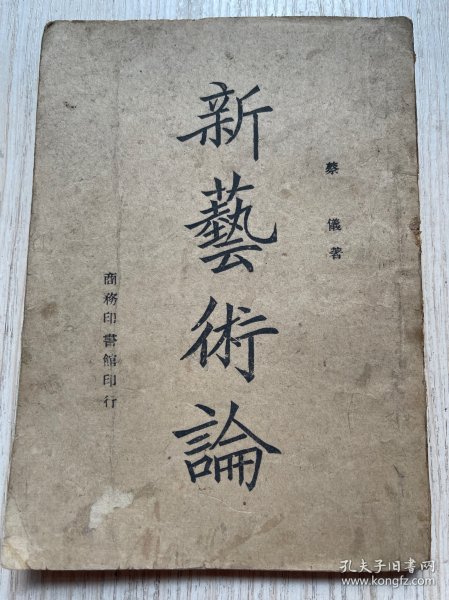 蔡儀著
新藝術論
商務印書館印行
孔夫子旧书网
www.kongfz.com